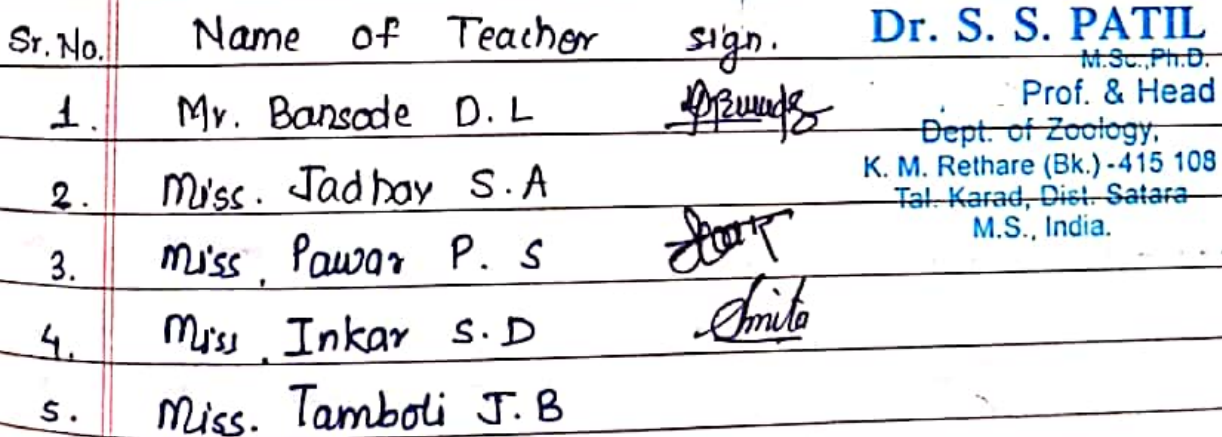 Sr. No. Name of Teacher sign.
1. Mr. Bansode D. L
2. Miss. Jadhav S. A
3. Miss. Pawar P. S
4. Miss. Inkar S. D Smita
5. Miss. Tamboli J. B
Dr. S. S. PATIL
M.Sc., Ph.D.
Prof. & Head
Dept. of Zoology,
K. M. Rethare (Bk.) - 415 108
Tal. Karad, Dist. Satara
M.S., India.